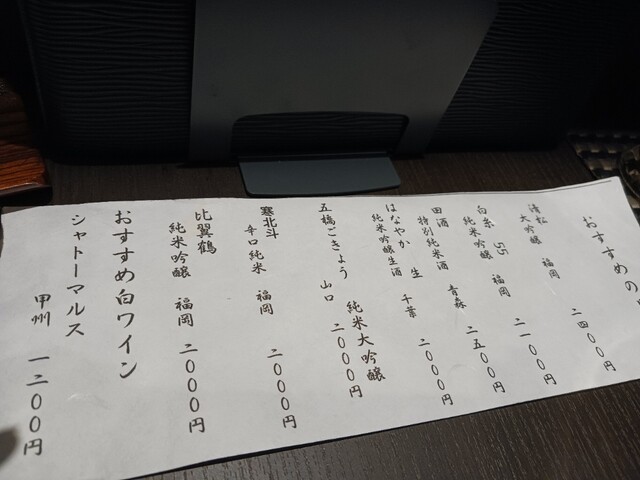 おすすめの
大吟醸 福岡 二四〇〇円
白糸 55
純米吟醸 福岡 二一〇〇円
田酒
特別純米酒 青森 二五〇〇円
はなやか 生
純米吟醸生酒 千葉 二〇〇〇円
五橋ごきょう 純米大吟醸
山口 二〇〇〇円
寒北斗
辛口純米 福岡 二〇〇〇円
比翼鶴
純米吟醸 福岡 二〇〇〇円
おすすめ白ワイン
シャトーマルス
甲州 一二〇〇円